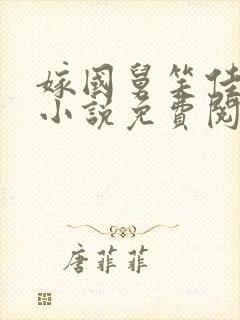 嫁國舅笑佳
小說免費閱
唐菲菲